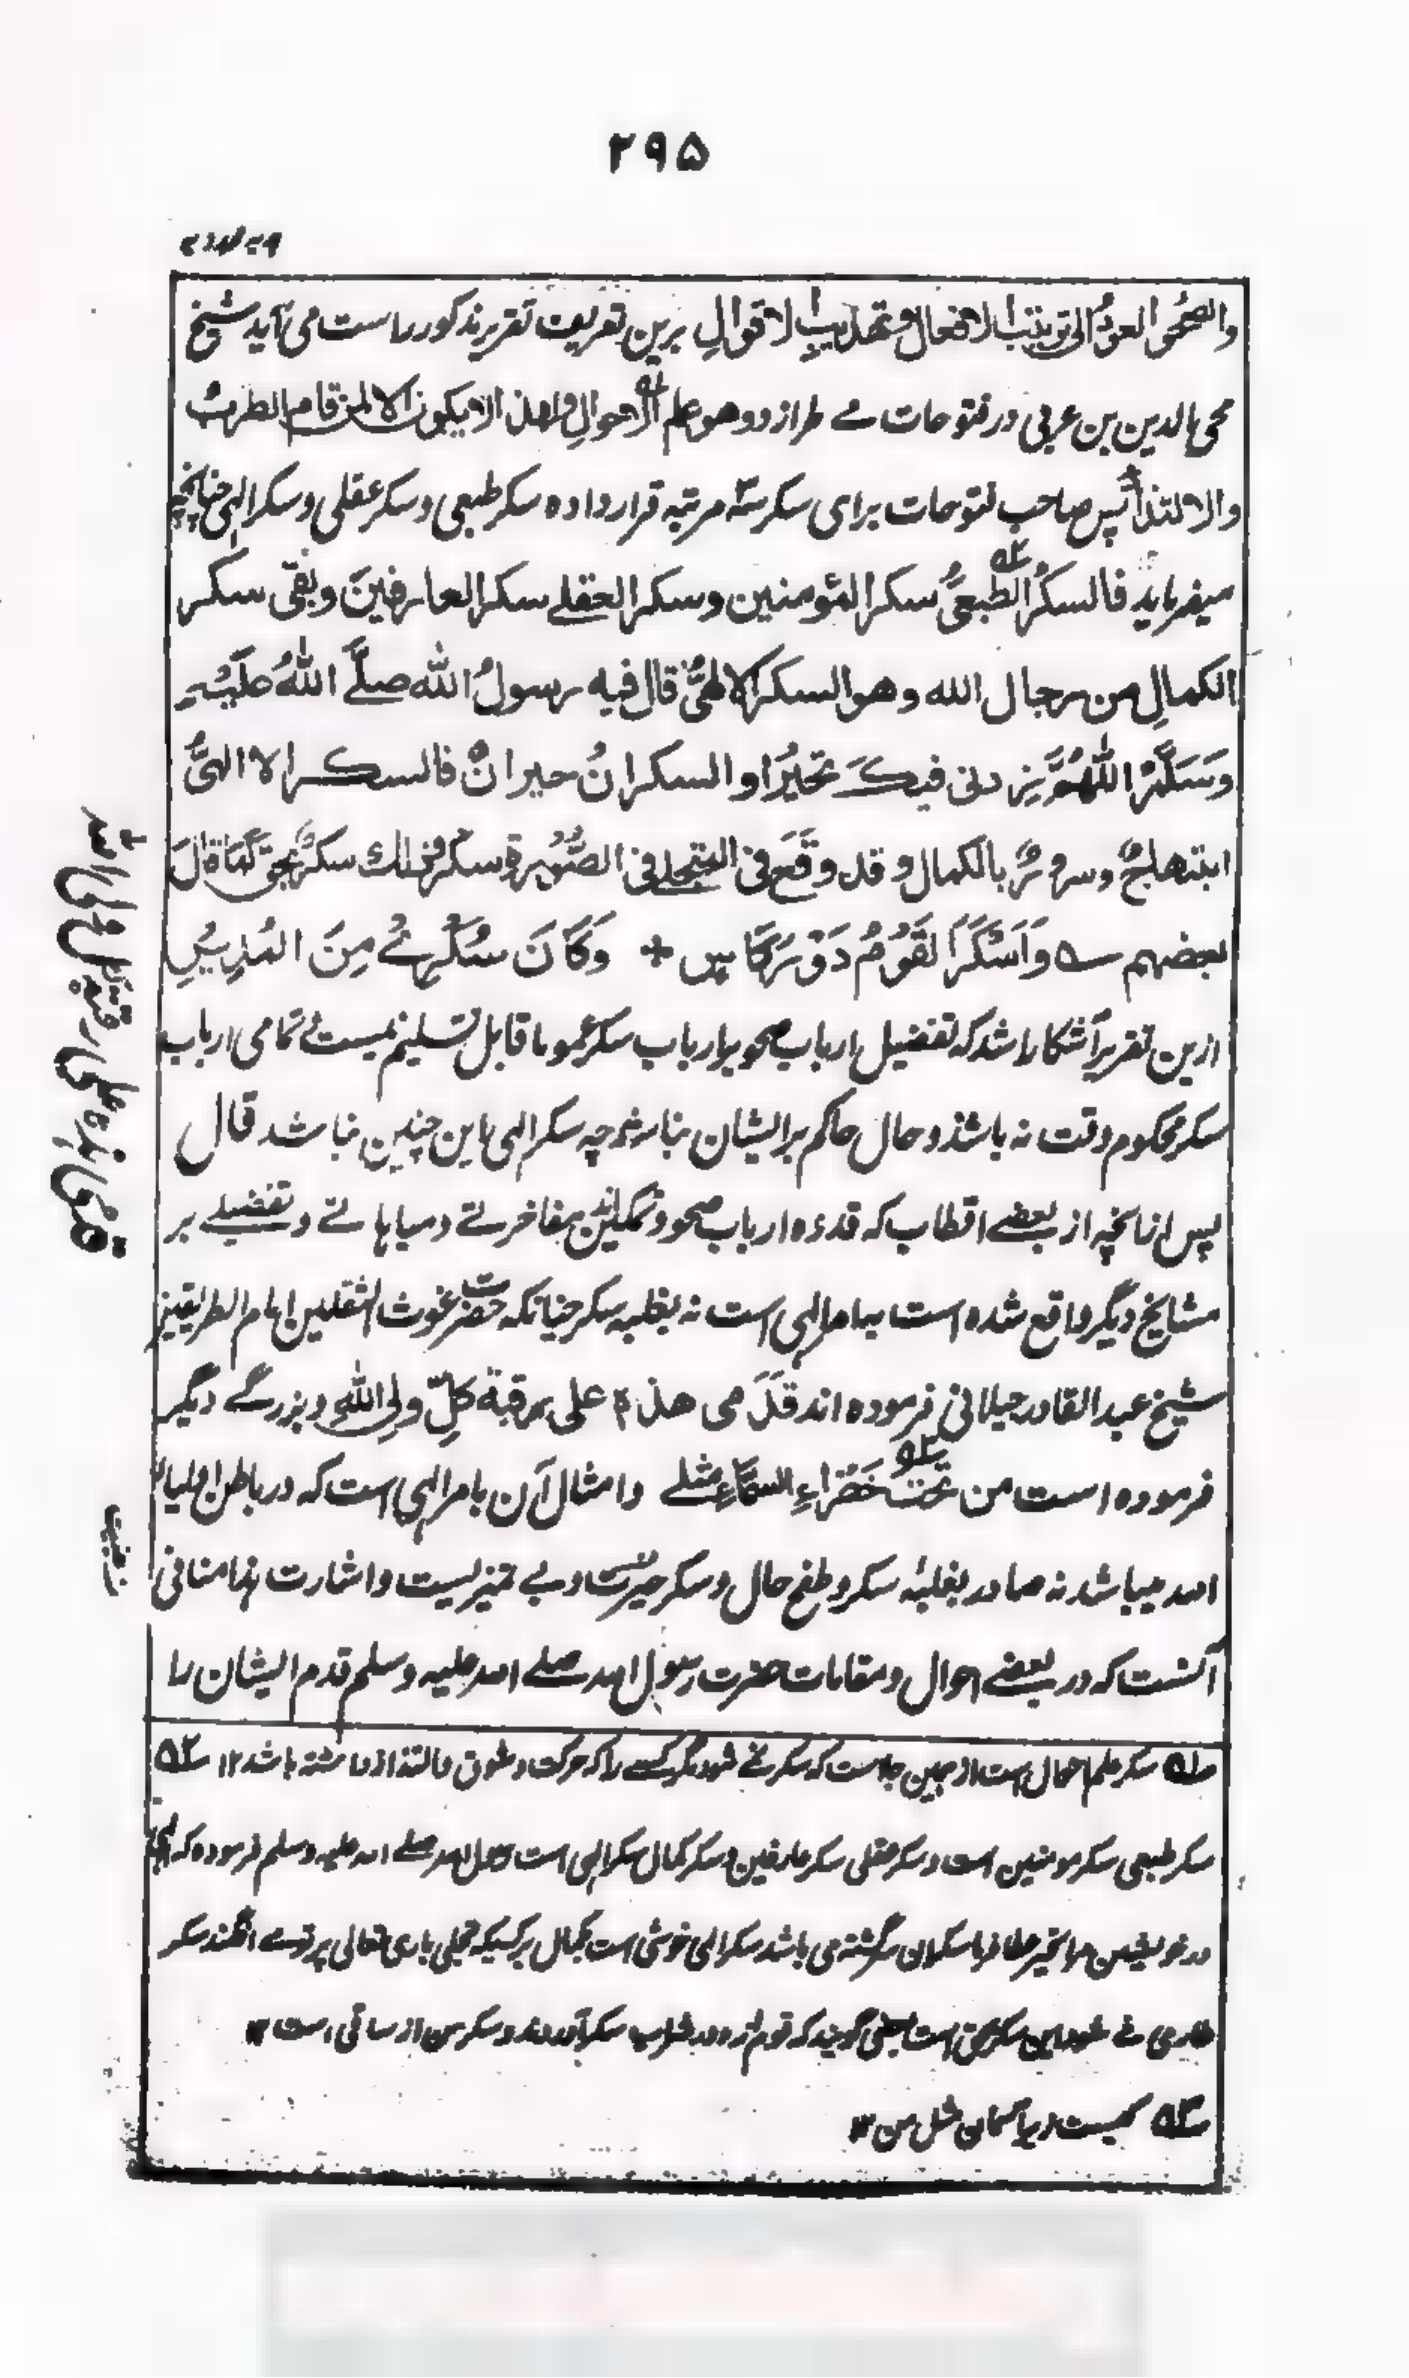 ۲۹۵
والصحو العود الی ترتیب الافعال وتهذیب الاقوال برین تعریف تقریر مذکور راست می آید شیخ
محی الدین بن عربی در فتوحات مے طرازد و هو علم الاحوال ولهذا لا یکون الا لمن قام الطرب
والالتذاذ پس صاحب فتوحات برای سکر سه مرتبه قرار داده سکر طبعی و سکر عقلی و سکر الهی چنانچه
میفرماید فالسکر الطبعی سکر المؤمنین وسکر العقلے سکر العارفین وبقی سکر
الکمال من رجال الله وهو السکر الالهی قال فیه رسول الله صلے الله علیه
وسلم اللهم زدنی فیک تحیرا والسکران حیران فالسکر الالهی
ابتهاج وسرور بالکمال وقد وقع فی التجلے فی الصورة سکر فذلک سکر بحق کما قال
بعضهم ـــه واسکر القوم دور کاس + وکان سکری من المدیر
ازین تقریر آشکارا شد که تفضیل ارباب صحو بر ارباب سکر عموما قابل تسلیم نیست تمامی ارباب
سکر محکوم وقت نه باشند و حال حاکم بر ایشان بنا شد چه سکر الهی این چنین نباشد قال
پس ازنانچه از بعضے اقطاب که قدوه ارباب صحو و تمکین اند مفاخرتے و مباهاتے و تفضیلے بر
مشایخ دیگر واقع شده است بامر الهی است نه بغلبه سکر چنانکه حضرت غوث الثقلین امام الطریقین
شیخ عبدالقادر جیلانی فرموده اند قدمی هذه علی رقبة کل ولی الله و بزرگے دیگر
فرموده است من تحت خضراء السماء مثلے و امثال آن بامر الهی است که در باطن اولیاء
الله میباشد نه صادر بغلبۀ سکر و طفح حال و سکر حیرتست و بے تمیزیست و اشارت نهامنافی
آنست که در بعضے احوال و مقامات حضرت رسول الله صلے الله علیه وسلم قدم ایشان را
قدمی هذه علی رقبة کل ولی الله
ـــه۱ سکر علم احوال است از همین جاست که سکر نمے شود مگر کسے را که حرکت و شوق و التذاذ داشته باشد ۱۲ ـــه۲
سکر طبعی سکر مومنین است و سکر عقلی سکر عارفین و سکر کمال سکر الهی است رسول الله صلے الله علیه وسلم فرموده که
در خویشتن مرا تحیر عطا فرما سکران سرگشته می باشد سکر الهی خوشی است بکمال هر کسیکه تجلی باری تعالی پرتوے افگند سکر
طاری مے شود این سکر بحق است بعضی گویند که قوم را دور شراب سکر آورد و سکر من از ساقی است ۱۲
ـــه۳ کیست زیر آسمان مثل من ۱۲